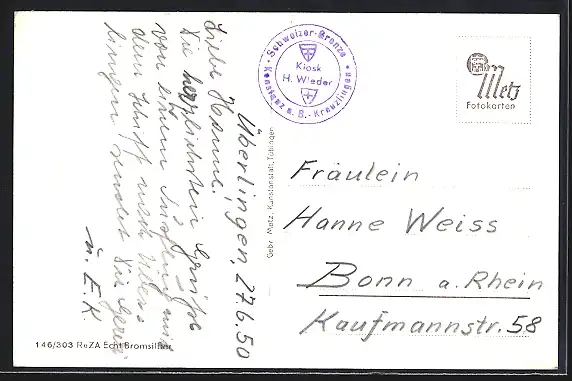 Überlingen, 27.6.50
Liebe Hanne.
Die herzlichsten Grüße
von einem Ausflug mit
dem Schiff nach Über-
lingen sendet Dir Gerda
u. E.K
Schweizer-Grenze
Kiosk
H. Wieder
Konstanz a. B. - Kreuzlingen
Metz
Fotokarten
Gebr. Metz, Kunstanstalt, Tübingen
Fräulein
Hanne Weiss
Bonn a. Rhein
Kaufmannstr. 58
146/303 RuZA Echt Bromsilber